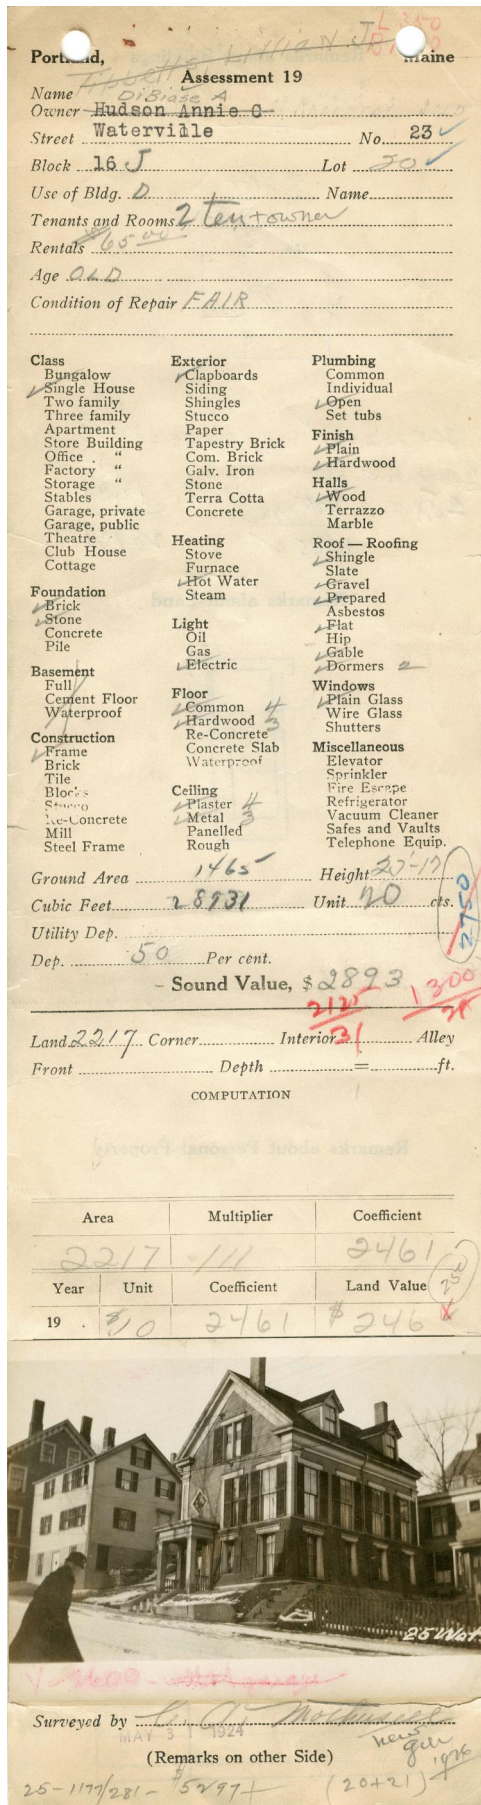 L 350
Portland, Maine
Lillian J
Assessment 19
Name DiBiase A
Owner Hudson Annie C
Street Waterville No. 23
Block 16 J Lot 20
Use of Bldg. D Name
Tenants and Rooms 2 ten + owner
Rentals $65.00
Age OLD
Condition of Repair FAIR
Class
Bungalow
Single House
Two family
Three family
Apartment
Store Building
Office . "
Factory "
Storage "
Stables
Garage, private
Garage, public
Theatre
Club House
Cottage
Foundation
Brick
Stone
Concrete
Pile
Basement
Full
Cement Floor
Waterproof
Construction
Frame
Brick
Tile
Blocks
Stucco
Re-Concrete
Mill
Steel Frame
Exterior
Clapboards
Siding
Shingles
Stucco
Paper
Tapestry Brick
Com. Brick
Galv. Iron
Stone
Terra Cotta
Concrete
Heating
Stove
Furnace
Hot Water
Steam
Light
Oil
Gas
Electric
Floor
Common 4
Hardwood 3
Re-Concrete
Concrete Slab
Waterproof
Ceiling
Plaster 4
Metal 3
Panelled
Rough
Plumbing
Common
Individual
Open
Set tubs
Finish
Plain
Hardwood
Halls
Wood
Terrazzo
Marble
Roof — Roofing
Shingle
Slate
Gravel
Prepared
Asbestos
Flat
Hip
Gable
Dormers 2
Windows
Plain Glass
Wire Glass
Shutters
Miscellaneous
Elevator
Sprinkler
Fire Escape
Refrigerator
Vacuum Cleaner
Safes and Vaults
Telephone Equip.
Ground Area 1465 Height 20'-17
Cubic Feet 28931 Unit 20 cts.
2750
Utility Dep.
Dep. 50 Per cent.
Sound Value, $ 2893
2125 1300
31
Land 2217 Corner Interior Alley
Front Depth = ft.
COMPUTATION
Area Multiplier Coefficient
2217 .111 2461
Year Unit Coefficient Land Value
250
19 . $10 2461 $246
25 Wat
Surveyed by
MAY 31 1924
new
(Remarks on other Side)
1926
25-1177/281- $5297+ (20+21)